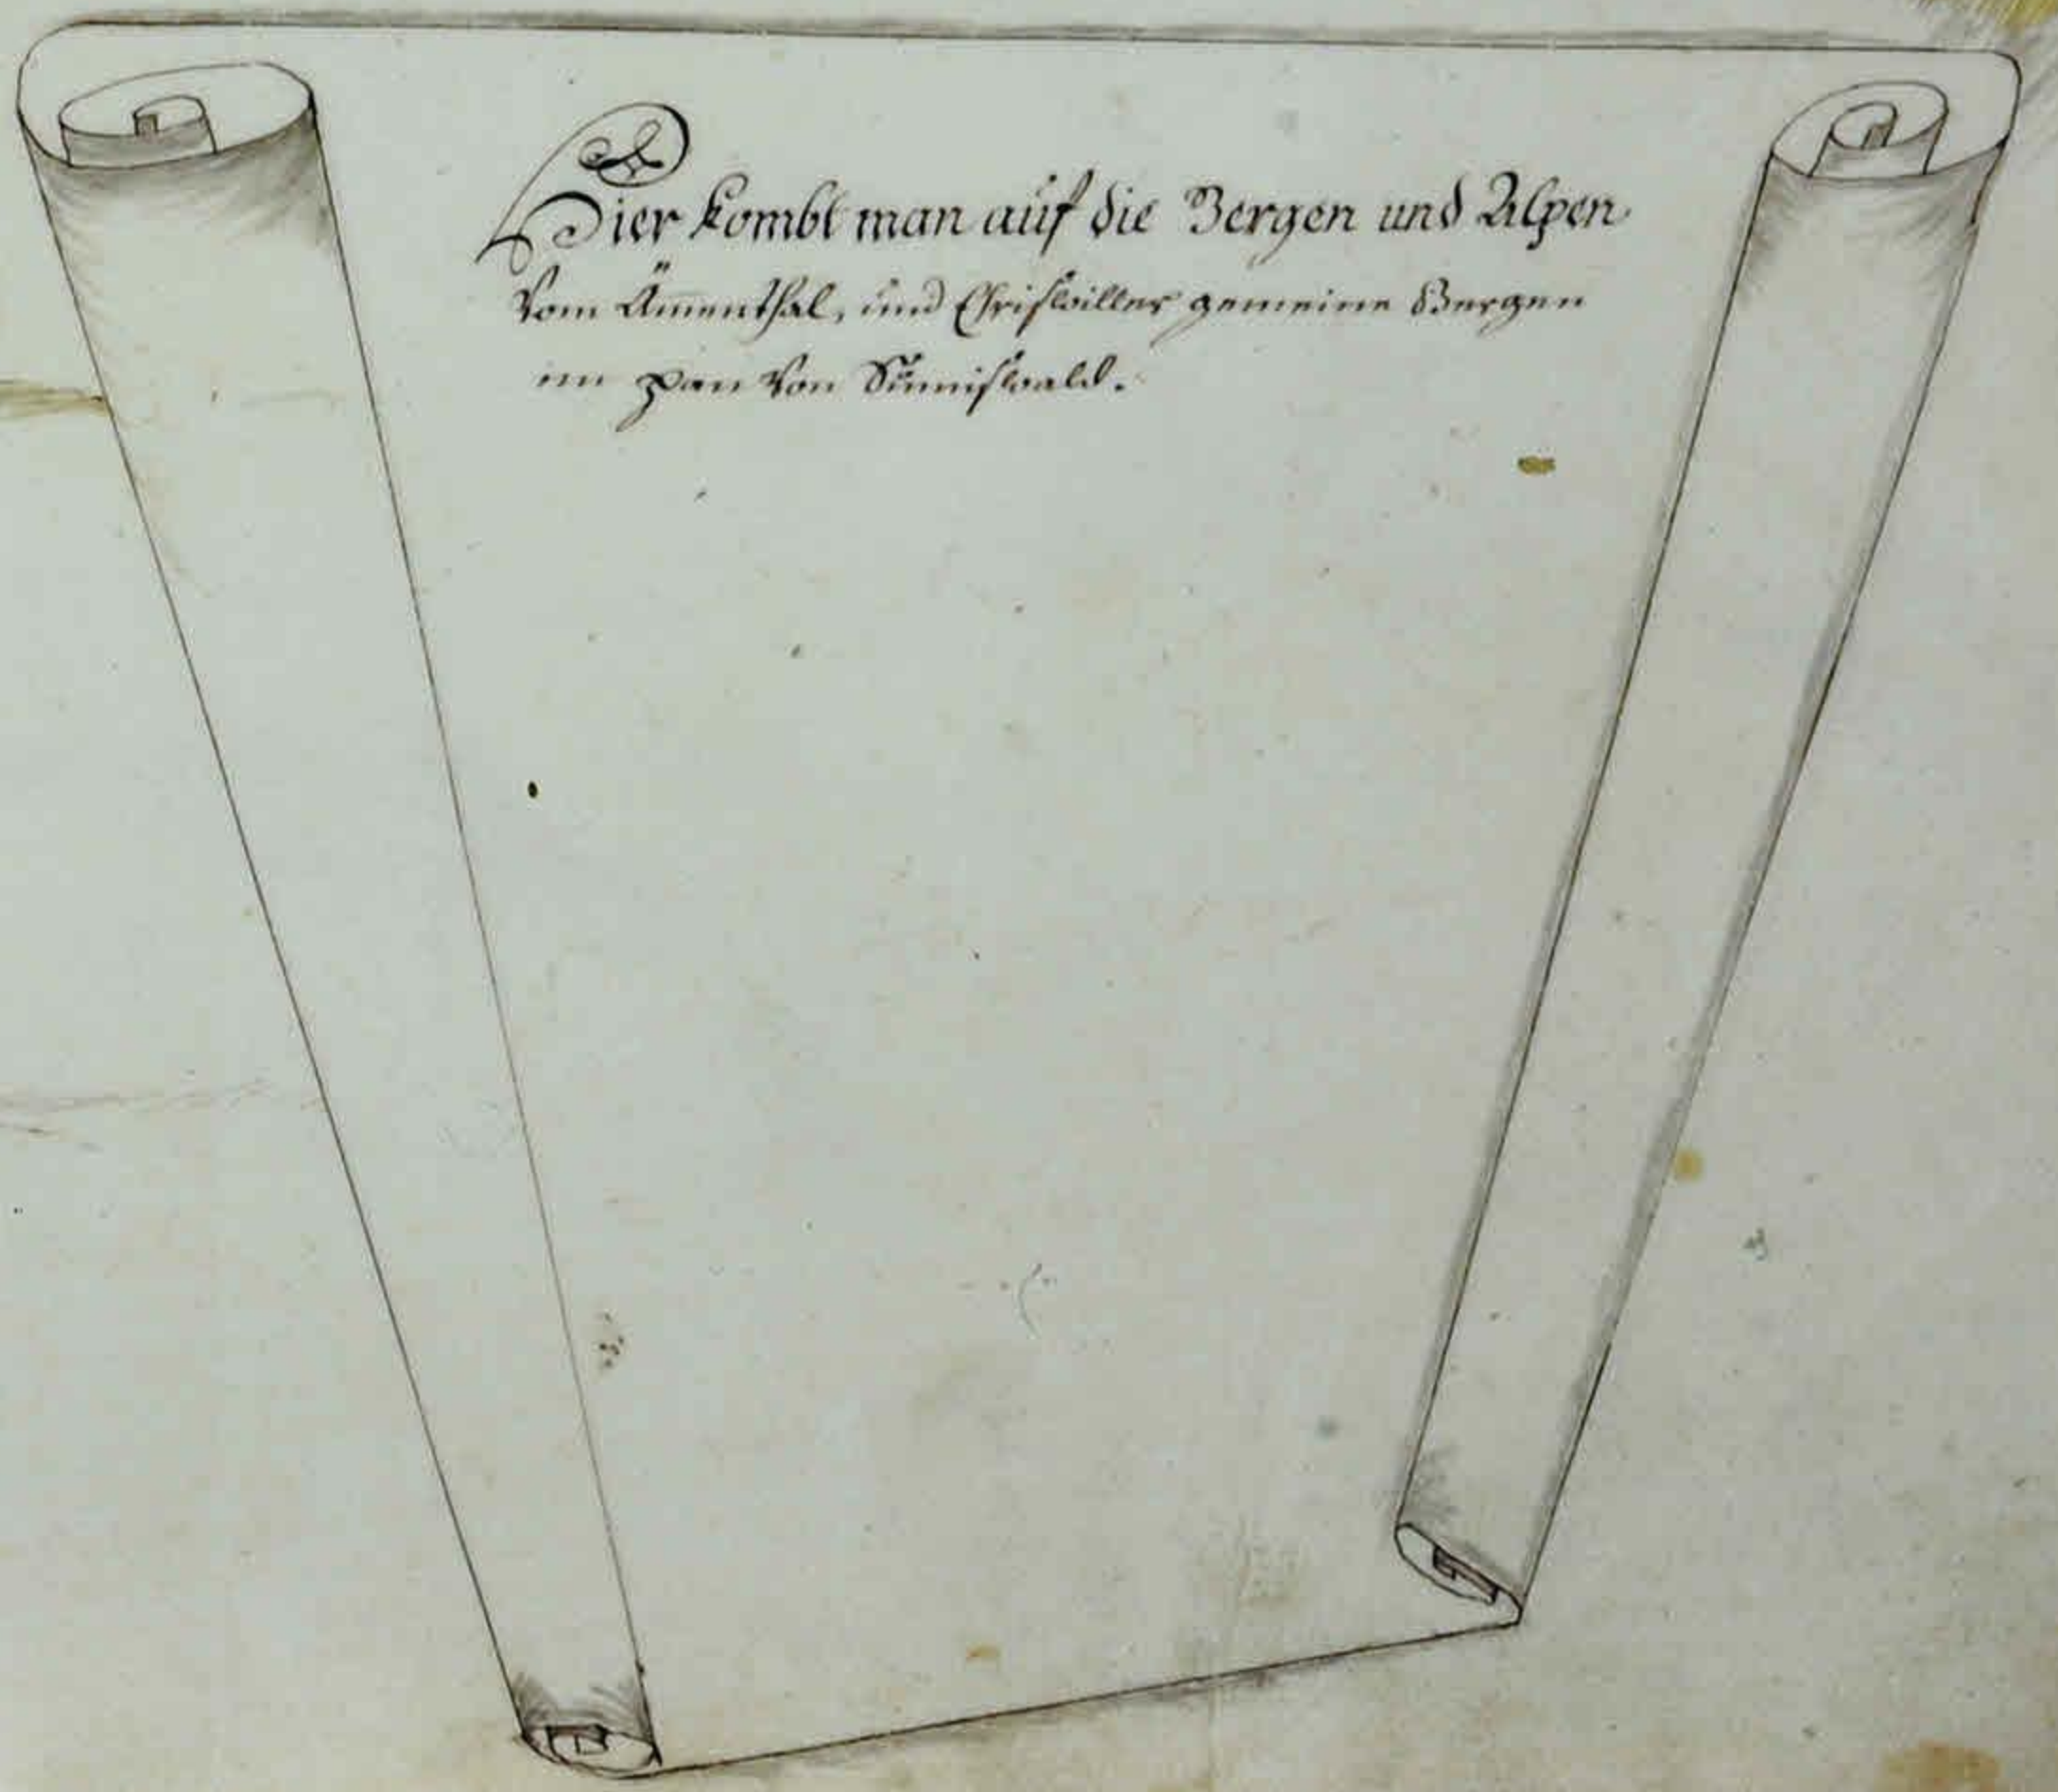 Hier kombt man auf die Bergen und Alpen
Vom Ämenthal, und Eriswiller gemeine Bergen
im pan von Sumiswald.